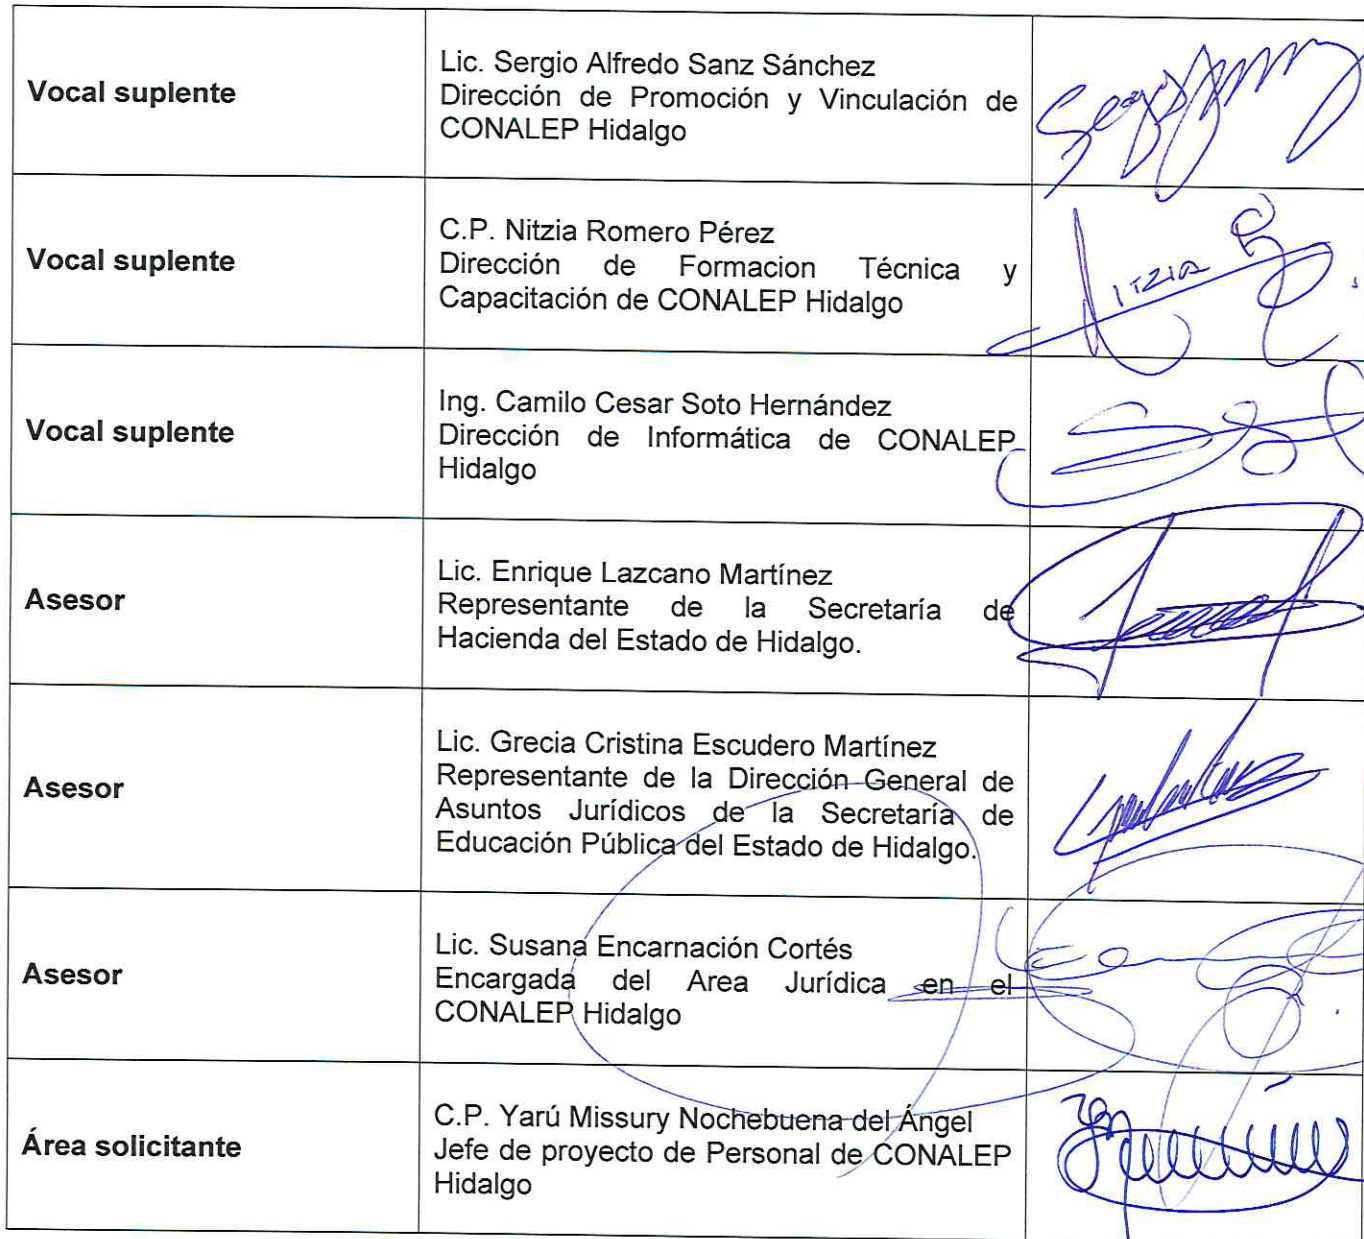 Vocal suplente
Lic. Sergio Alfredo Sanz Sánchez
Dirección de Promoción y Vinculación de
CONALEP Hidalgo
Vocal suplente
C.P. Nitzia Romero Pérez
Dirección de Formacion Técnica y
Capacitación de CONALEP Hidalgo
Nitzia R
Vocal suplente
Ing. Camilo Cesar Soto Hernández
Dirección de Informática de CONALEP
Hidalgo
Asesor
Lic. Enrique Lazcano Martínez
Representante de la Secretaría de
Hacienda del Estado de Hidalgo.
Asesor
Lic. Grecia Cristina Escudero Martínez
Representante de la Dirección General de
Asuntos Jurídicos de la Secretaría de
Educación Pública del Estado de Hidalgo.
Asesor
Lic. Susana Encarnación Cortés
Encargada del Area Jurídica en el
CONALEP Hidalgo
Área solicitante
C.P. Yarú Missury Nochebuena del Ángel
Jefe de proyecto de Personal de CONALEP
Hidalgo